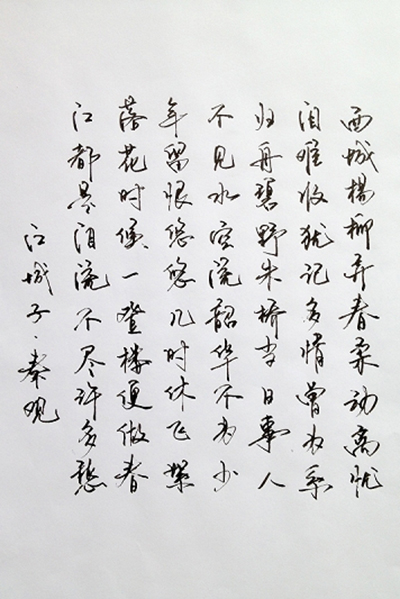 西城楊柳弄春柔动离忧
泪难收犹记多情曾为系
归舟碧野朱桥当日事人
不见水空流韶华不为少
年留恨悠悠几时休飞絮
落花时候一登楼便做春
江都是泪流不尽许多愁
江城子·秦观